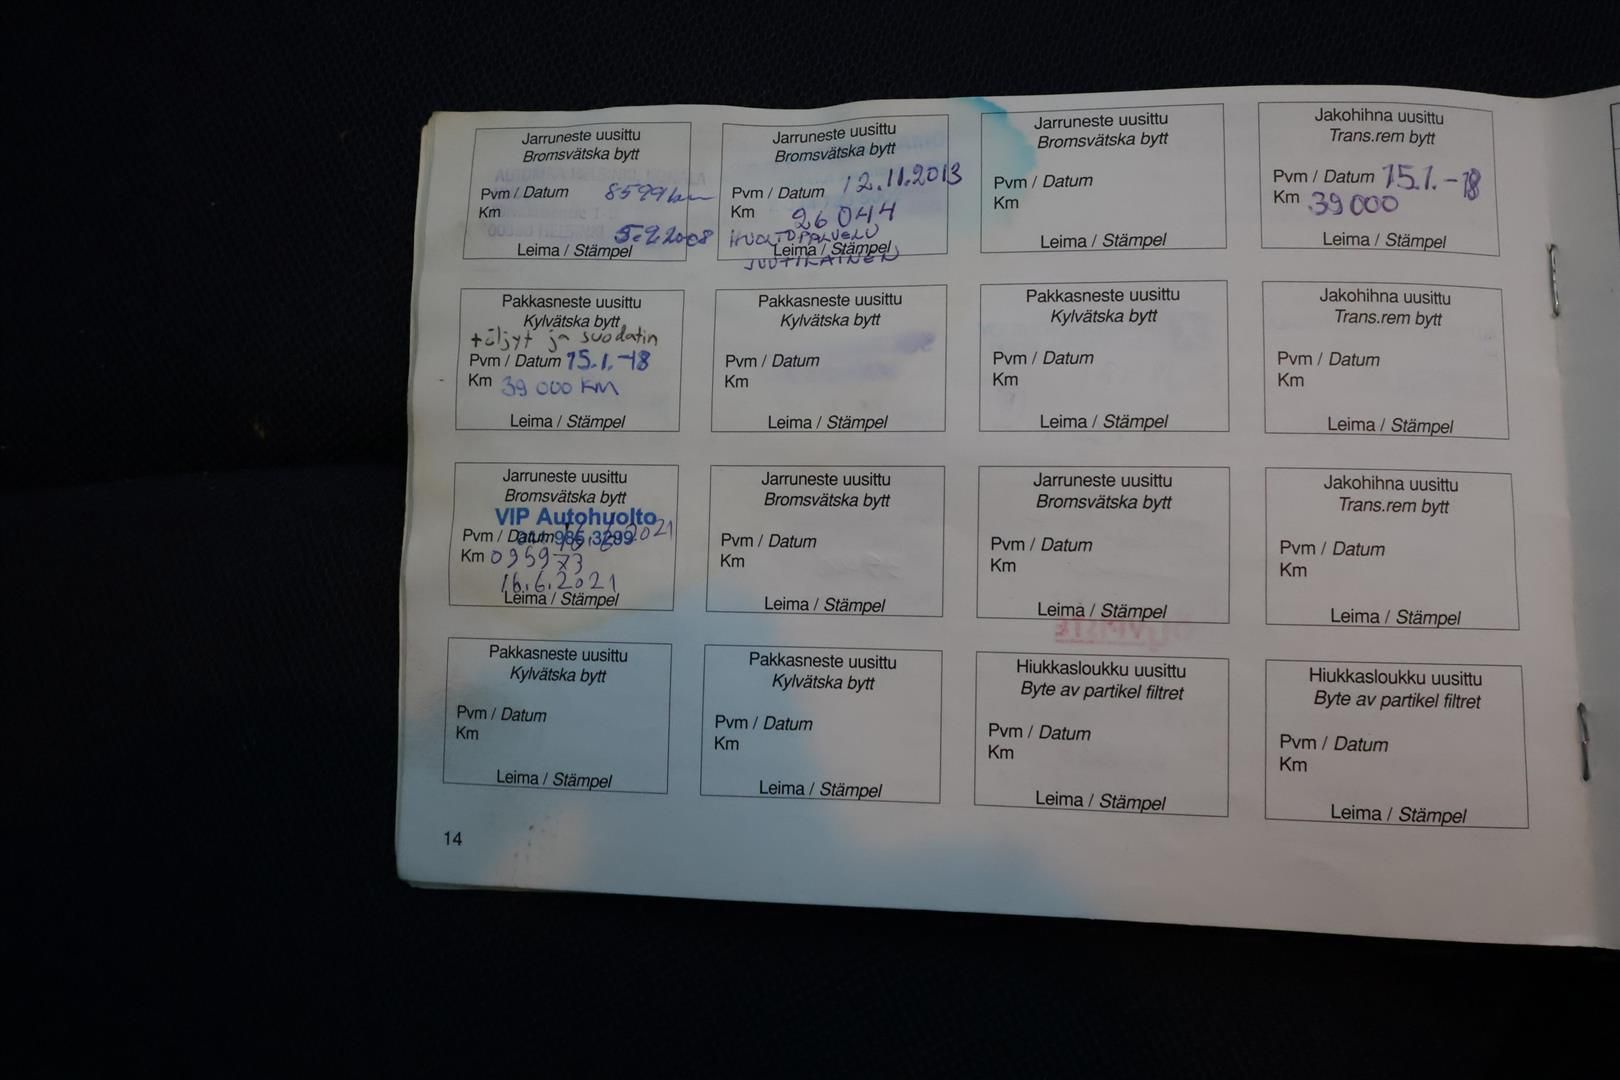 Jarruneste uusittu
Bromsvätska bytt
Pvm / Datum 8599 km
Km
5.2.2008
Leima / Stämpel
Jarruneste uusittu
Bromsvätska bytt
Pvm / Datum 12.11.2013
Km 26 044
HUOLTOPALVELU
Leima / Stämpel
JUUTILAINEN
Jarruneste uusittu
Bromsvätska bytt
Pvm / Datum
Km
Leima / Stämpel
Jakohihna uusittu
Trans.rem bytt
Pvm / Datum 15.1.-18
Km 39 000
Leima / Stämpel
Pakkasneste uusittu
Kylvätska bytt
+öljyt ja suodatin
Pvm / Datum 15.1.-18
Km 39 000 KM
Leima / Stämpel
Pakkasneste uusittu
Kylvätska bytt
Pvm / Datum
Km
Leima / Stämpel
Pakkasneste uusittu
Kylvätska bytt
Pvm / Datum
Km
Leima / Stämpel
Jakohihna uusittu
Trans.rem bytt
Pvm / Datum
Km
Leima / Stämpel
Jarruneste uusittu
Bromsvätska bytt
VIP Autohuolto
Pvm / Datum 16.6.2021
985 3299
Km 095973
16.6.2021
Leima / Stämpel
Jarruneste uusittu
Bromsvätska bytt
Pvm / Datum
Km
Leima / Stämpel
Jarruneste uusittu
Bromsvätska bytt
Pvm / Datum
Km
Leima / Stämpel
Jakohihna uusittu
Trans.rem bytt
Pvm / Datum
Km
Leima / Stämpel
Pakkasneste uusittu
Kylvätska bytt
Pvm / Datum
Km
Leima / Stämpel
Pakkasneste uusittu
Kylvätska bytt
Pvm / Datum
Km
Leima / Stämpel
Hiukkasloukku uusittu
Byte av partikel filtret
Pvm / Datum
Km
Leima / Stämpel
Hiukkasloukku uusittu
Byte av partikel filtret
Pvm / Datum
Km
Leima / Stämpel
14